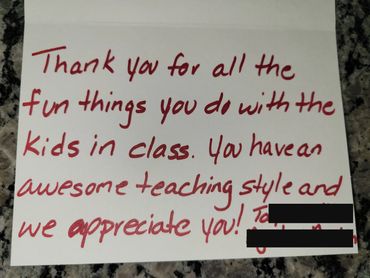 Thank you for all the
fun things you do with the
kids in class. You have an
awesome teaching style and
we appreciate you!